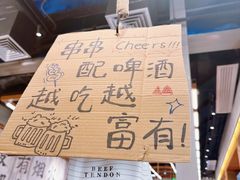 串串 Cheers!!!
配啤酒
越吃越
富有!
BEEF
TENDON